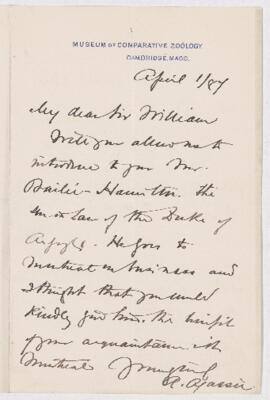 MUSEUM OF COMPARATIVE ZOÖLOGY,
CAMBRIDGE, MASS.
April 1/87
My dear Sir William
Will you allow me to
introduce to you Mr.
Bailie-Hamilton. the
son in law of the Duke of
Argyle. He goes to
Montreal on business and
I thought that you would
kindly give him the benefit
of your acquaintance in
Montreal Yours truly
A. Agassiz